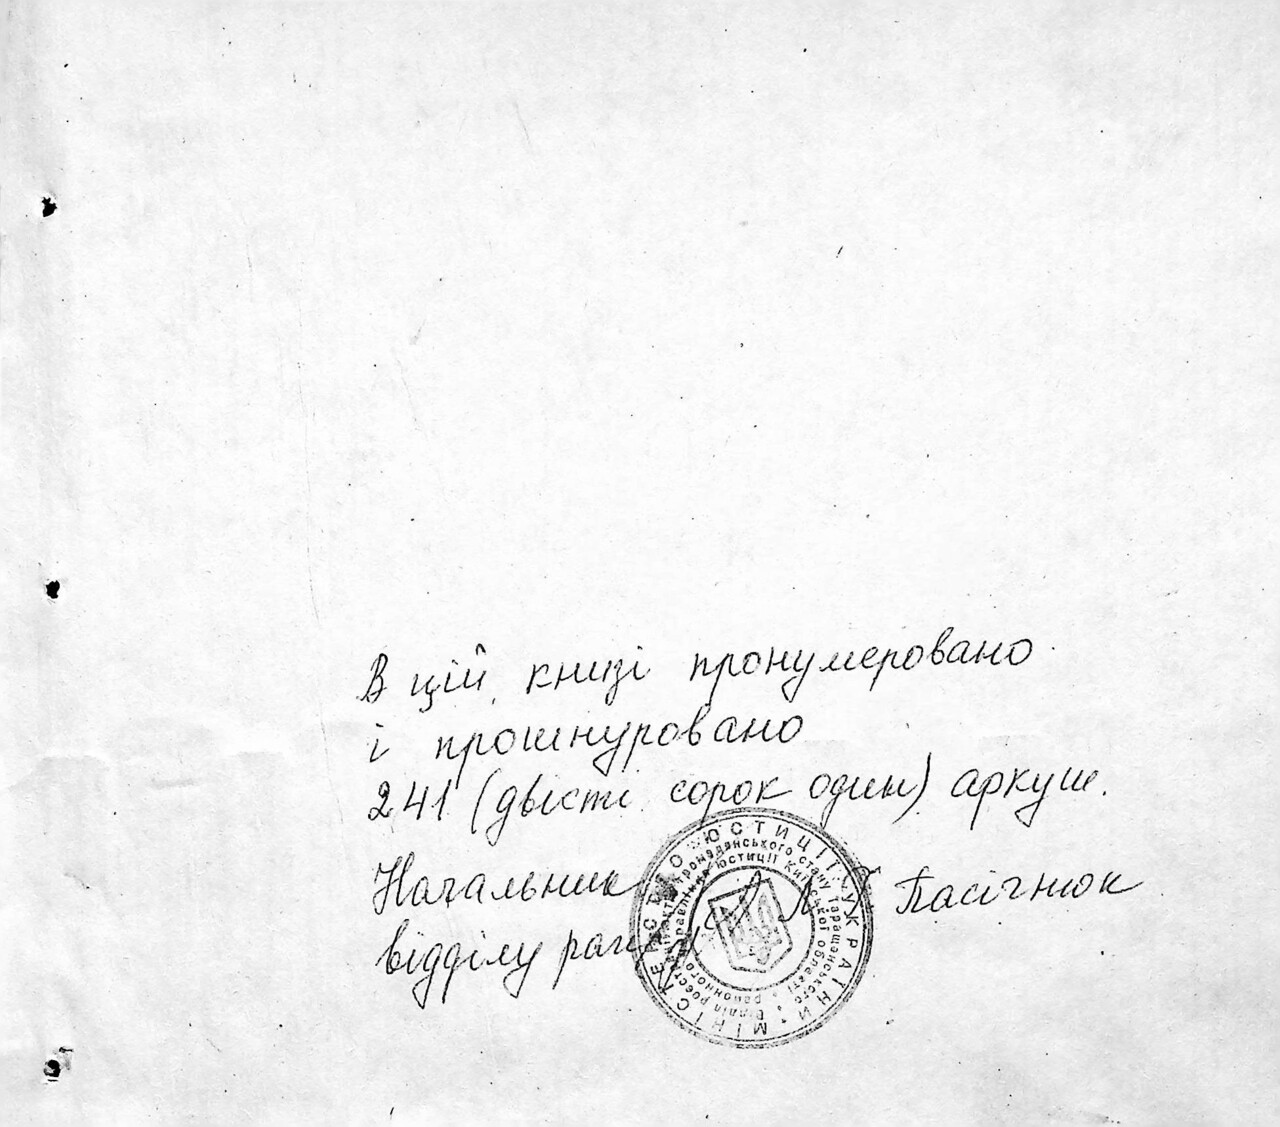 В цій книзі пронумеровано
і прошнуровано
241 (двісті сорок один) аркуш.
Начальник Л. Г. Пасічнюк
відділу рагсу
МІНІСТЕРСТВО ЮСТИЦІЇ УКРАЇНИ
Відділ реєстрації актів громадянського стану Таращанського
районного управління юстиції Київської області